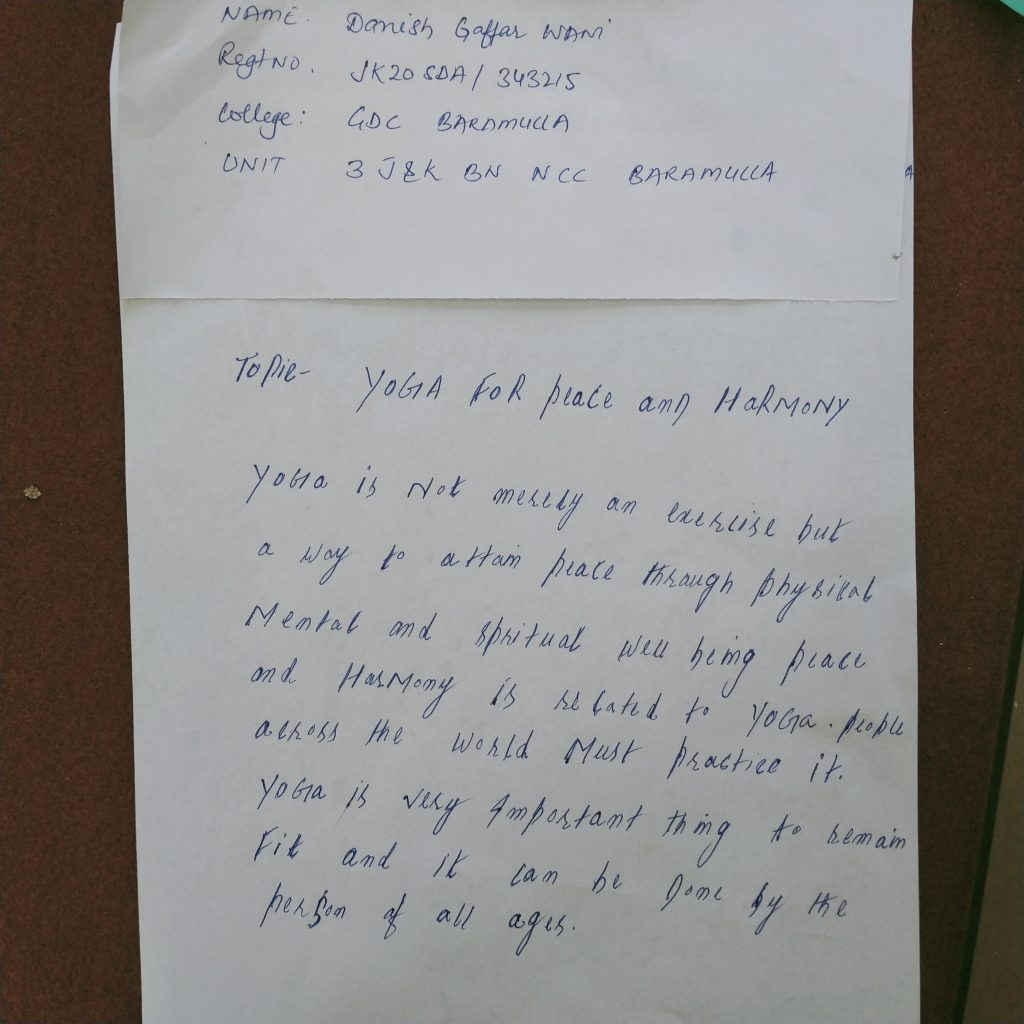 NAME. Danish Gaffar WANI
RegtNo. JK20SDA/343215
College: GDC BARAMULLA
UNIT 3 J&K BN NCC BARAMULLA
Topic- YOGA FOR peace anD HaRMONY
YOGa is Not merely an exercise but
a way to attain peace through physical
Mental and spritual well being peace
and HarMony is related to YOGa. people
across the world Must practice it.
YOGa is very Important thing to remain
Fit and it can be Done by the
person of all ages.